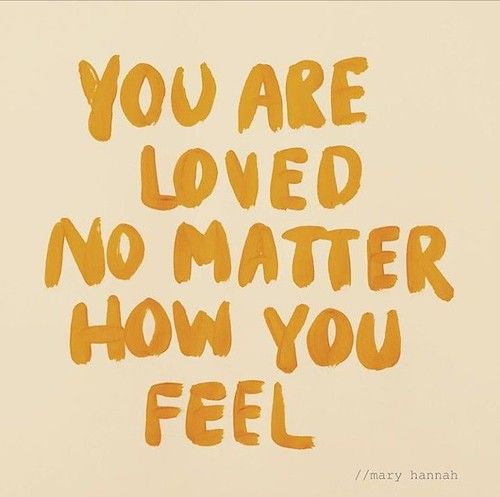 YOU ARE
LOVED
NO MATTER
HOW YOU
FEEL
//mary hannah